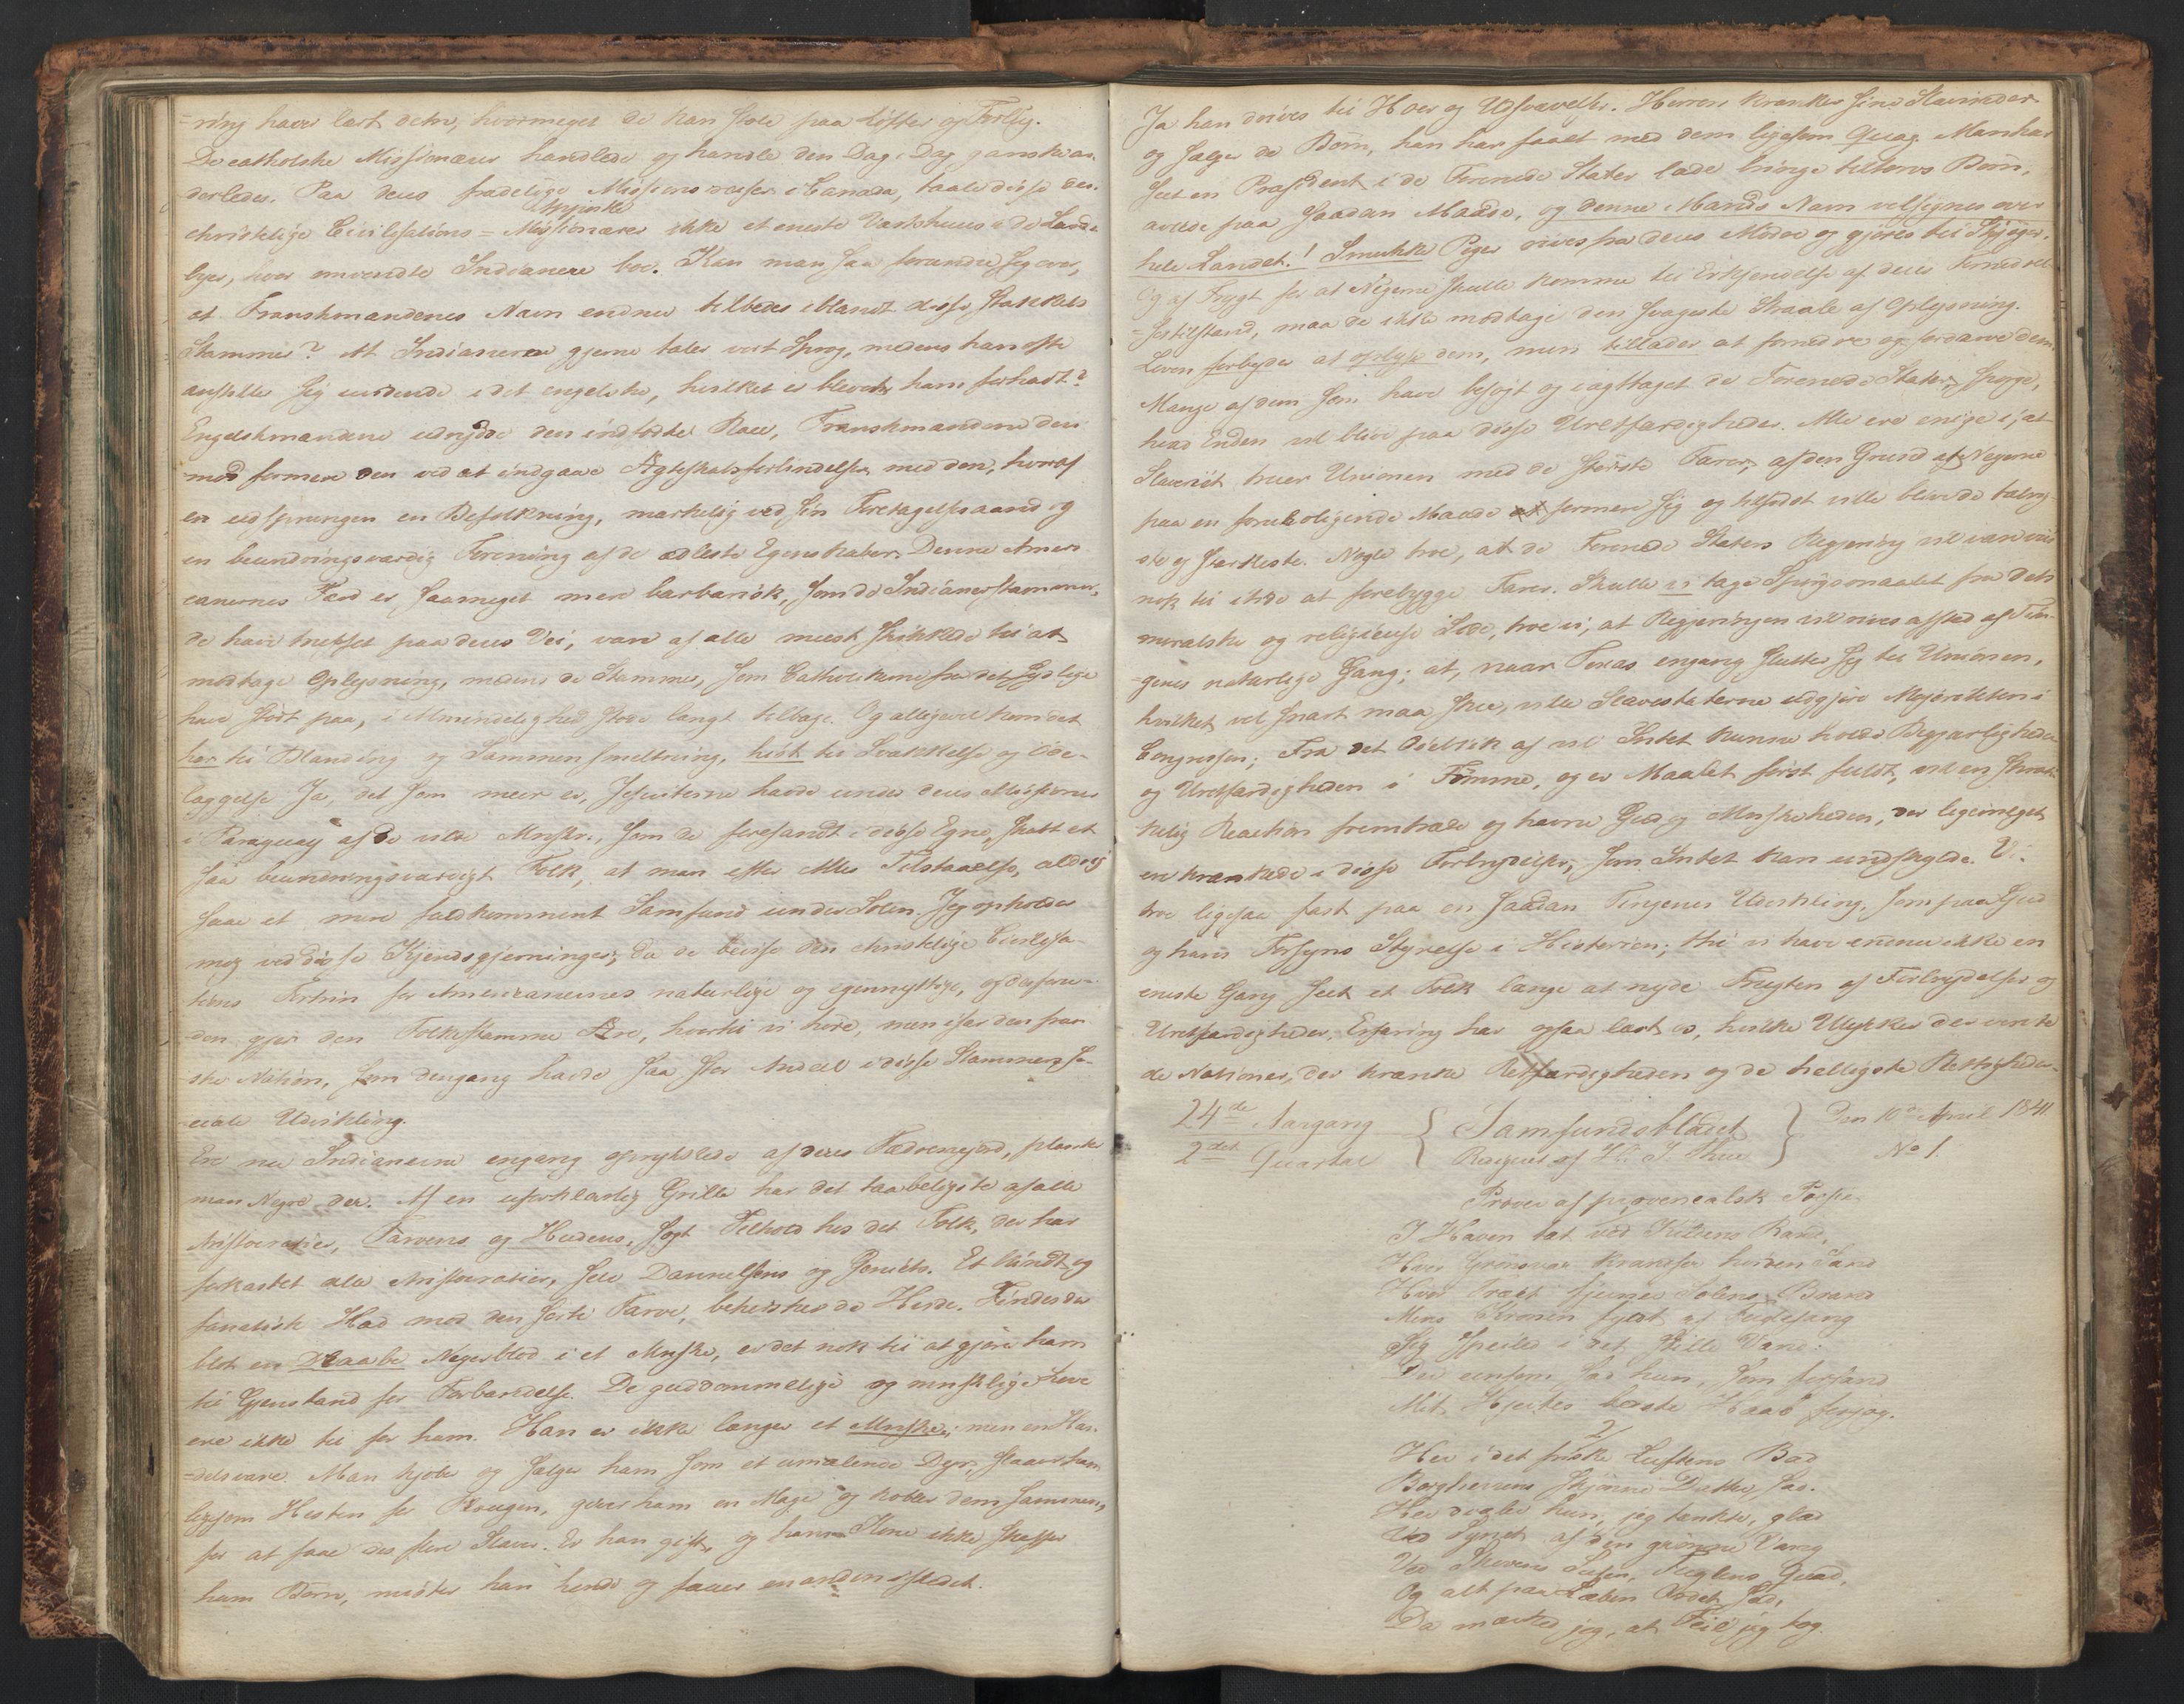 =ring have lært dem, hvormeget de kan stole paa Løfter og Forlig.
De catholske Missionærer handlede og handle den Dag i Dag ganske an-
derledes. Paa deres fredelige Missions reiser i Canada, taale disse den
christelige Civilisations = Missionærer ikke et eneste Værtshuus i de Lands-
byer, hvor omvendte Indianere boe. Kan man saa forundre sig over,
at Franskmandenes Navn endnu tilbedes iblandt disse stakkels
Stammer? At Indianerne gjerne taler vort Sprog, medens han ofte
anstiller sig uvidende i det engelske, hvilket er blevet ham forhadt?
Engelskmændene udrydde den indfødte Race, Franskmændene der-
mod formere den ved at indgaae Ægteskabsforbindelser med den, hvoraf
er udsprungen en Befolkning, mærkelig ved sin Foretagelsesaand og
en beundringsværdig Forening af de ædleste Egenskaber. Denne Ameri-
canernes Færd er saameget mere barbarisk, som de Indianerstammer,
de have truffet paa deres Vei, vare af alle meest skikkede til at
modtage Oplysning, medens de Stammer, som Catholikerne fra det Sydlige
have stødt paa, i Almindelighed stode langt tilbage. Og alligevel kom det
her til Blanding og Sammensmeltning, hist til Svækkelse og Øde-
læggelse. Ja, det som meer er, Jesuiterne havde under deres Missioner
i Paraguay af de vilde Mnskr., som de forefandt i disse Egne, skabt et
saa beundringsværdigt Folk, at man efter Alles Tilstaaelse, aldrig
saae et mere fuldkomment Samfund under Solen. Jeg opholder
mig ved disse Kjendsgjerninger, da de bevise den christelige Civilisa-
tions Fortrin for Americanernes naturlige og egennyttige, og desforu-
den gjør den Folkestamme Ære, hvortil vi høre, men især den fran-
ske Nation, som dengang havde saa stor Andeel i disse Stammers so-
ciale Udvikling.
Ere nu Indianerne engang oprykkede af deres Fædrenejord, plante
man Negre der. Af en uforklarlig Grille har det taabeligste af alle
Aristocratier, Farvens og Hudens, søgt Tilhold hos det Folk, der har
forkastet alle Aristocratier, selv Dannelsens og Geniets. Et blindt og
fanatisk Had mod den sorte Farve, beherskes de Hvide. Findes der
blot en Draabe Negerblod i et Mnske, er det nok til at gjøre ham
til Gjenstand for Forbandelse. De guddommelige og mnsklige Love
ere ikke til for ham. Han er ikke længer et Mnske, men en Han-
=delsvare. Man kjøber og sælger ham som et umælende Dyr, slaaer ham
ligesom Hesten for Plougen, giver ham en Mage og kobler dem sammen,
for at faae des flere Slaver. Er han gift, og hans Kone ikke skaffer
ham Børn, mister han hende og faaer en anden istedet.
Ja han drives til Hoer og Udsvævelser. Herren krænker sine Slavinder
og sælger de Børn, han har faaet med dem ligesom Qvæg. Man har
seet en Præsident i de Forenede Stater lade bringe tiltorvs Børn,
avlede paa saadan Maade, og denne Mands Navn velsignes over
hele Landet! Smukke Piger rives fra deres Mødre og gjøres til Skjøger.
Og af Frygt for at Negerne skulle komme til Erkjendelse af deres Fornedrel-
=sestilstand, maa de ikke modtage den svageste Straale af Oplysning.
Loven forbyder at oplyse dem, men tillader at fornedre og fordærve dem.
Mange af dem som have besøgt og iagttaget de Forenede Stater, spørge,
hvad Enden vil blive paa disse Uretfærdigheder. Alle ere enige i, at
Slaveriet truer Unionen med de største Farer, af den Grund at Negerne
paa en foruroligende Maade formere sig og tilsidst ville blive de talrig-
ste og stærkeste. Nogle troe, at de Forenede Staters Regjering vil være viis
nok til itide at forebygge Faren. Skulle vi tage Spørgsmaalet fra dets
moralske og religieuse Side, troe vi, at Regjeringen vil rives afsted af Tin-
=genes naturlige Gang; at, naar Texas engang slutter sig til Unionen,
hvilket vel snart maa skee, ville Slavestaterne udgjøre Majoriteten i
Congressen; Fra det Øieblik af vil Intet kunne holde Begjærligheden
og Uretfærdigheden i Tømme, og er Maalet først fuldt, vil en skræk-
kelig Reaction fremtræde og hævne Gud og Mnskeheden, der ligemeget
ere krænkede i disse Forbrydelser, som Intet kan undskylde. Vi
troe ligesaa fast paa en saadan Tingenes Udvikling, som paa Gud
og hans Forsyns Styrelse i Historien; thi vi have endnu ikke en
eneste Gang seet et Folk længe at nyde Frugten af Forbrydelser og
Uretfærdigheder. Erfaring har ogsaa lært os, hvilke Ulykker der vente
de Nationer, der krænke Retfærdigheden og de helligste Rettigheder.
24de Aargang { Samfundsbladet } Den 10de April 1841.
2det Quartal { Redigeret af H. J. Thue } No 1.
Prøver af provencalsk Poesie.
I Haven tæt ved Kildens Rand,
Hvor Grønsvær krandser hviden Sand
Hvor Frugt fjerner Solens Brand
Mens Kronen fyldt af Fuglesang
Sig speiled i det stille Vand:
Der eensom sad hun, som forsand
Mit Hjertes bedste Haab forjog.
2/
Her i det friske Luftens Bad
Borgherrens skjønne Datter sad.
Her dvæler hun, jeg tænkte, glad
Ved Synet af den grønne Vang
Ved Skovens Susen, Fuglens Qvad,
Og alt paa Læben Ordet sad,
Da mærked jeg, at Feil jeg tog.